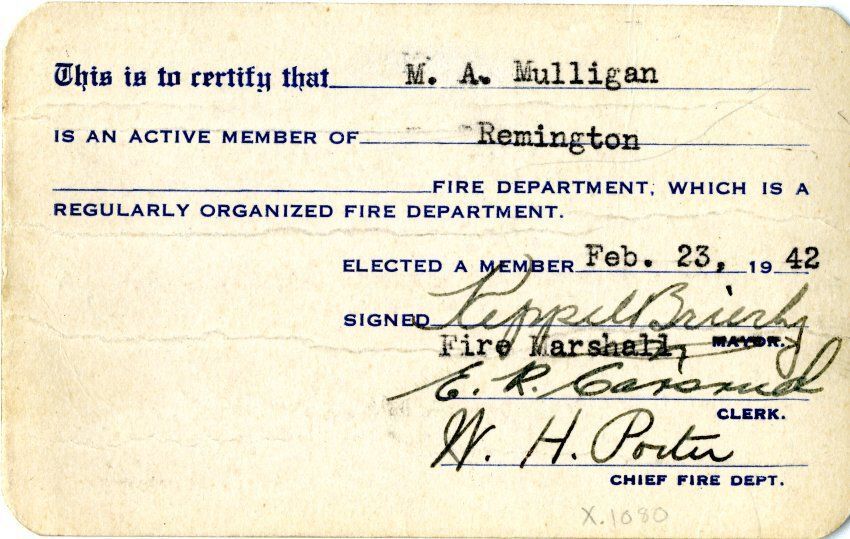 This is to certify that M. A. Mulligan
IS AN ACTIVE MEMBER OF Remington
FIRE DEPARTMENT, WHICH IS A
REGULARLY ORGANIZED FIRE DEPARTMENT.
ELECTED A MEMBER Feb. 23, 1942
SIGNED Keppel Brierly
Fire Marshall, MAYOR.
E. R.
CLERK.
W. H. Porter
CHIEF FIRE DEPT.
X.1080